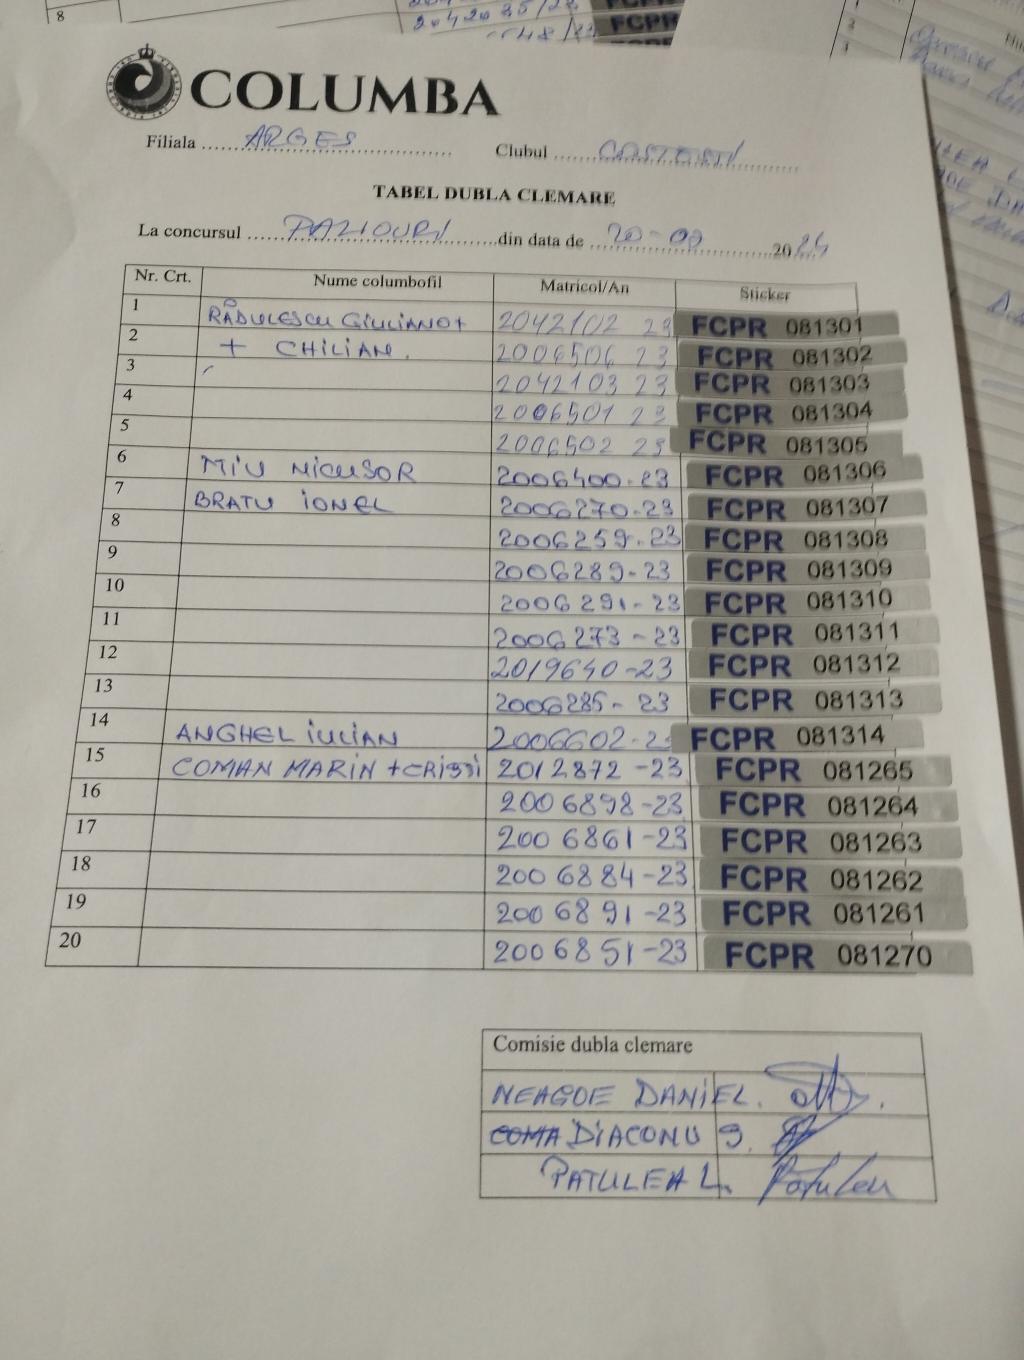 8
2042085/23
FCPR
COLUMBA
Filiala ARGES Clubul COSTESTI
TABEL DUBLA CLEMARE
La concursul PALIOURI din data de 20-07 2024
Nr. Crt. Nume columbofil Matricol/An Sticker
1 RĂDULESCU GIULIANO+ 2042102 23 FCPR 081301
2 + CHILIAN. 2006506 23 FCPR 081302
3 2042103 23 FCPR 081303
4 2006501 23 FCPR 081304
5 2006502 23 FCPR 081305
6 MIU NICUSOR 2006400-23 FCPR 081306
7 BRATU IONEL 2006270-23 FCPR 081307
8 2006259-23 FCPR 081308
9 2006289-23 FCPR 081309
10 2006291-23 FCPR 081310
11 2006273-23 FCPR 081311
12 2019640-23 FCPR 081312
13 2006285-23 FCPR 081313
14 ANGHEL IULIAN 2006602-23 FCPR 081314
15 COMAN MARIN +CRISSI 2012872-23 FCPR 081265
16 2006898-23 FCPR 081264
17 2006861-23 FCPR 081263
18 2006884-23 FCPR 081262
19 2006891-23 FCPR 081261
20 2006851-23 FCPR 081270
Comisie dubla clemare
NEAGOE DANIEL.
COMA DIACONU G.
PATULEA L. Patulea